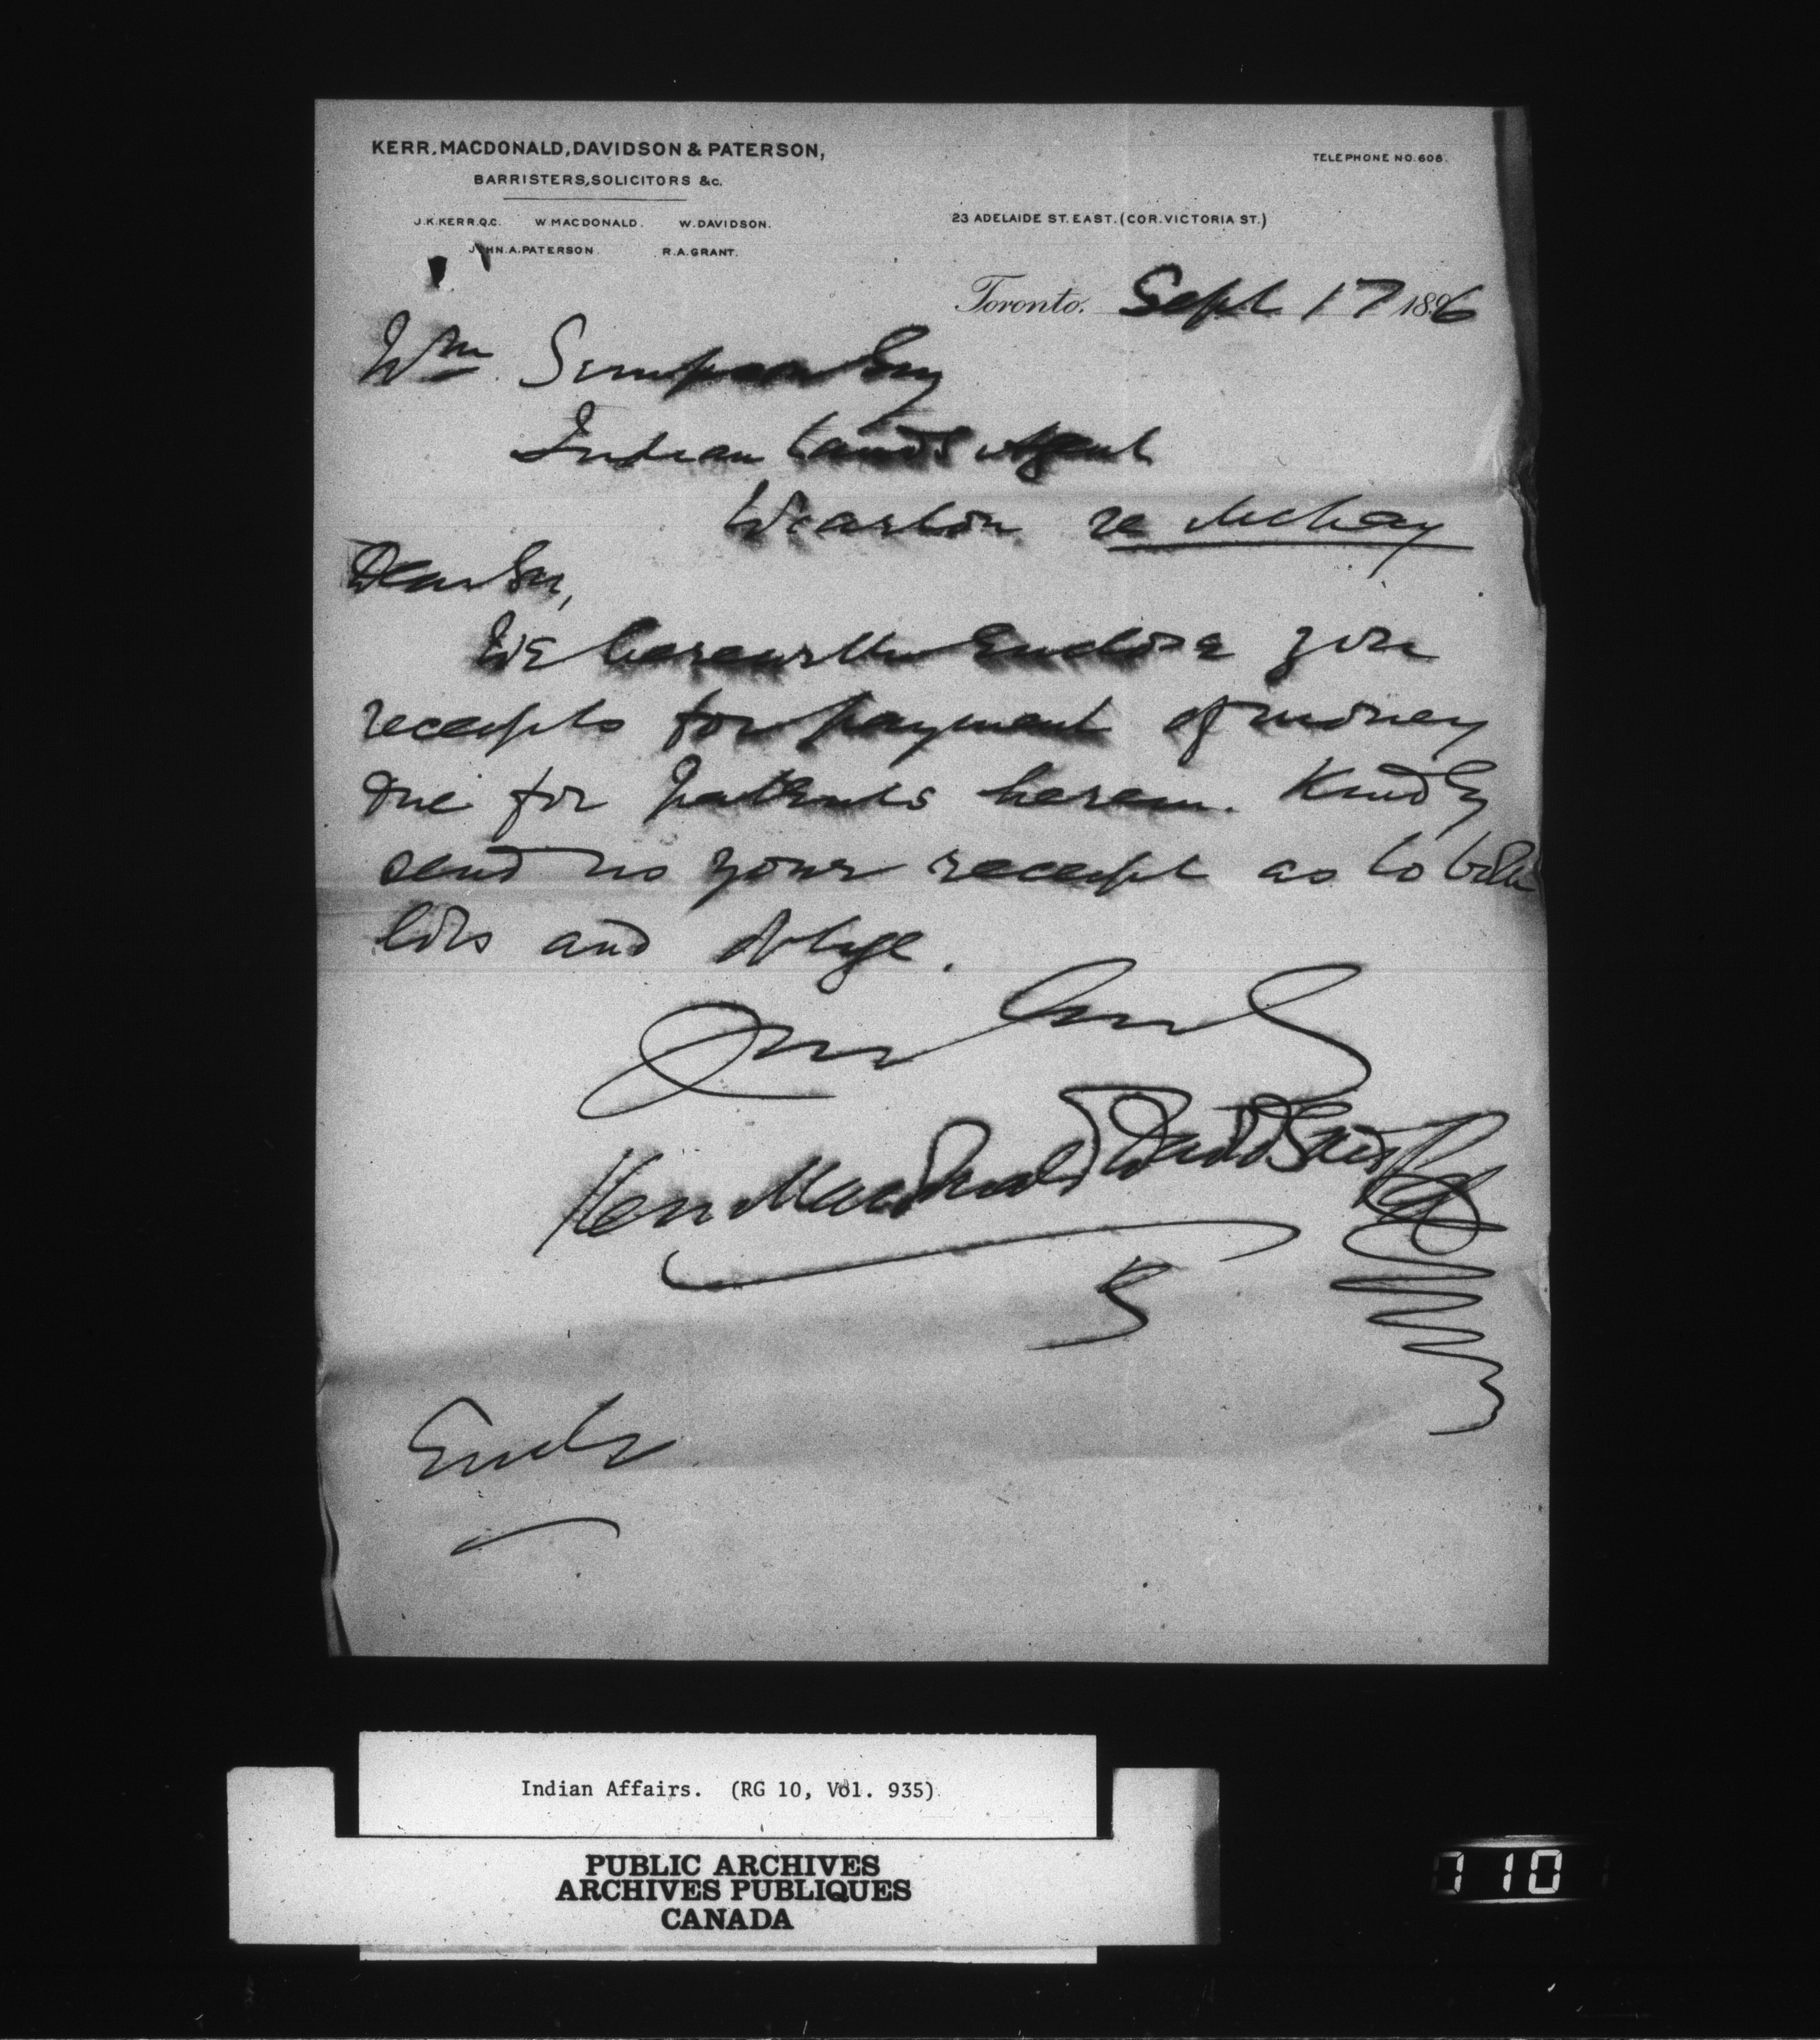 KERR, MACDONALD, DAVIDSON & PATERSON,
BARRISTERS, SOLICITORS &c.
TELEPHONE NO. 608.
J.K. KERR. Q.C. W. MACDONALD. W. DAVIDSON.
JOHN. A. PATERSON. R. A. GRANT.
23 ADELAIDE ST. EAST. (COR. VICTORIA ST.)
Toronto. Sept. 17 1896
Wm. Simpson Esq
Indian Lands Agent
Wiarton re McKay
Dear Sir,
We herewith Enclose you
receipts for payment of money
due for patents herein. Kindly
send us your receipt as to both
lots and oblige.
Yours truly
Kerr MacDonald Davidson &
Encls
Indian Affairs. (RG 10, Vol. 935)
PUBLIC ARCHIVES
ARCHIVES PUBLIQUES
CANADA
110